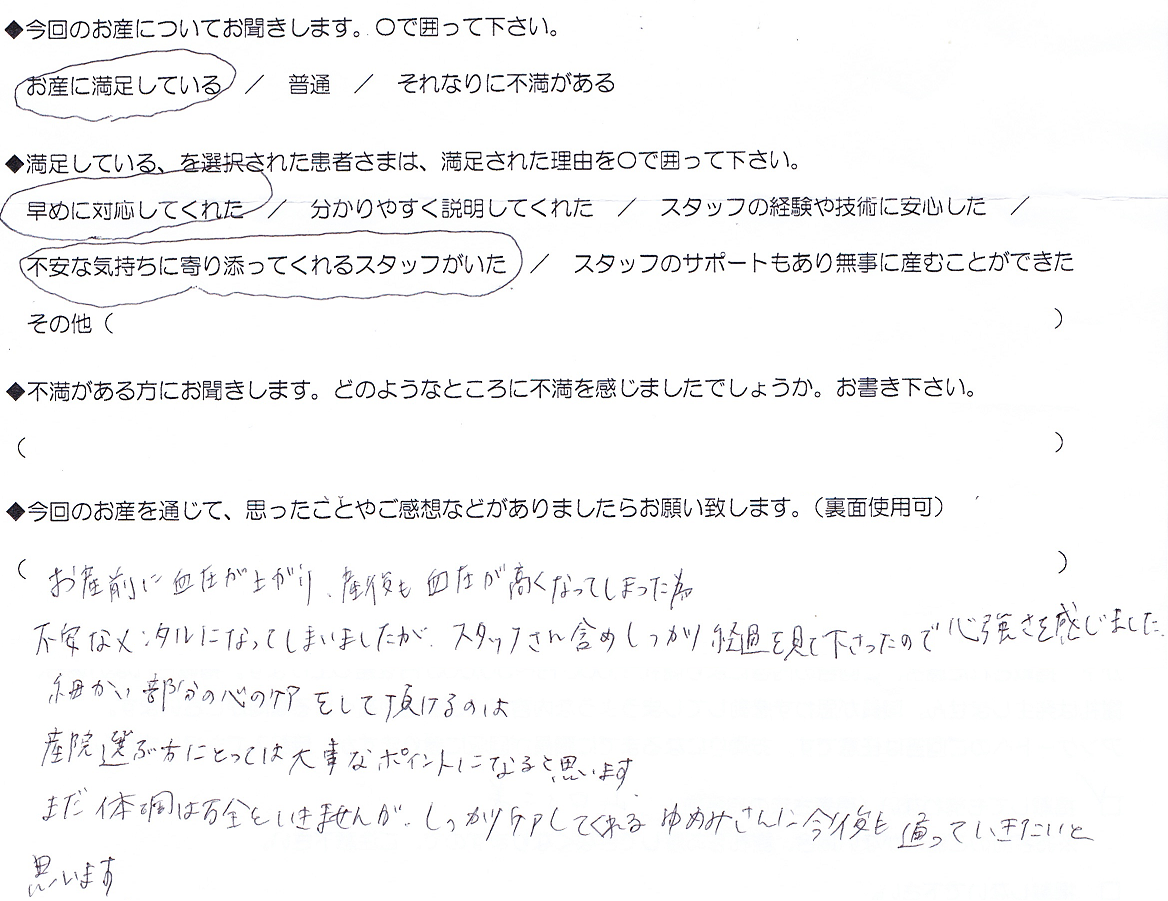 ◆今回のお産についてお聞きします。〇で囲って下さい。
お産に満足している ／ 普通 ／ それなりに不満がある
◆満足している、を選択された患者さまは、満足された理由を〇で囲って下さい。
早めに対応してくれた ／ 分かりやすく説明してくれた ／ スタッフの経験や技術に安心した ／
不安な気持ちに寄り添ってくれるスタッフがいた ／ スタッフのサポートもあり無事に産むことができた
その他（ ）
◆不満がある方にお聞きします。どのようなところに不満を感じましたでしょうか。お書き下さい。
（ ）
◆今回のお産を通じて、思ったことやご感想などがありましたらお願い致します。（裏面使用可）
（ お産前に血圧が上がり、産後も血圧が高くなってしまった為 ）
不安なメンタルになってしまいましたが、スタッフさん含めしっかり経過を見て下さったので心強さを感じました。
細かい部分の心のケアをして頂けるのは
産院選ぶ方にとっては大事なポイントになると思います
まだ体調は万全といきませんが、しっかりケアしてくれるゆめみさんに今後も通っていきたいと
思います